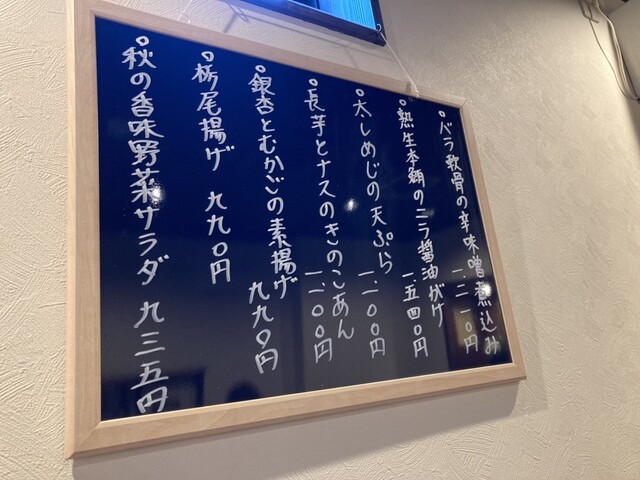 ○バラ軟骨の辛味噌煮込み
一.二一〇円
○熟生本鮪のニラ醤油がけ
一.五四〇円
○太しめじの天ぷら
一.一〇〇円
○長芋とナスのきのこあん
一.一〇〇円
○銀杏とむかごの素揚げ
九九〇円
○栃尾揚げ 九九〇円
○秋の香味野菜サラダ 九三五円